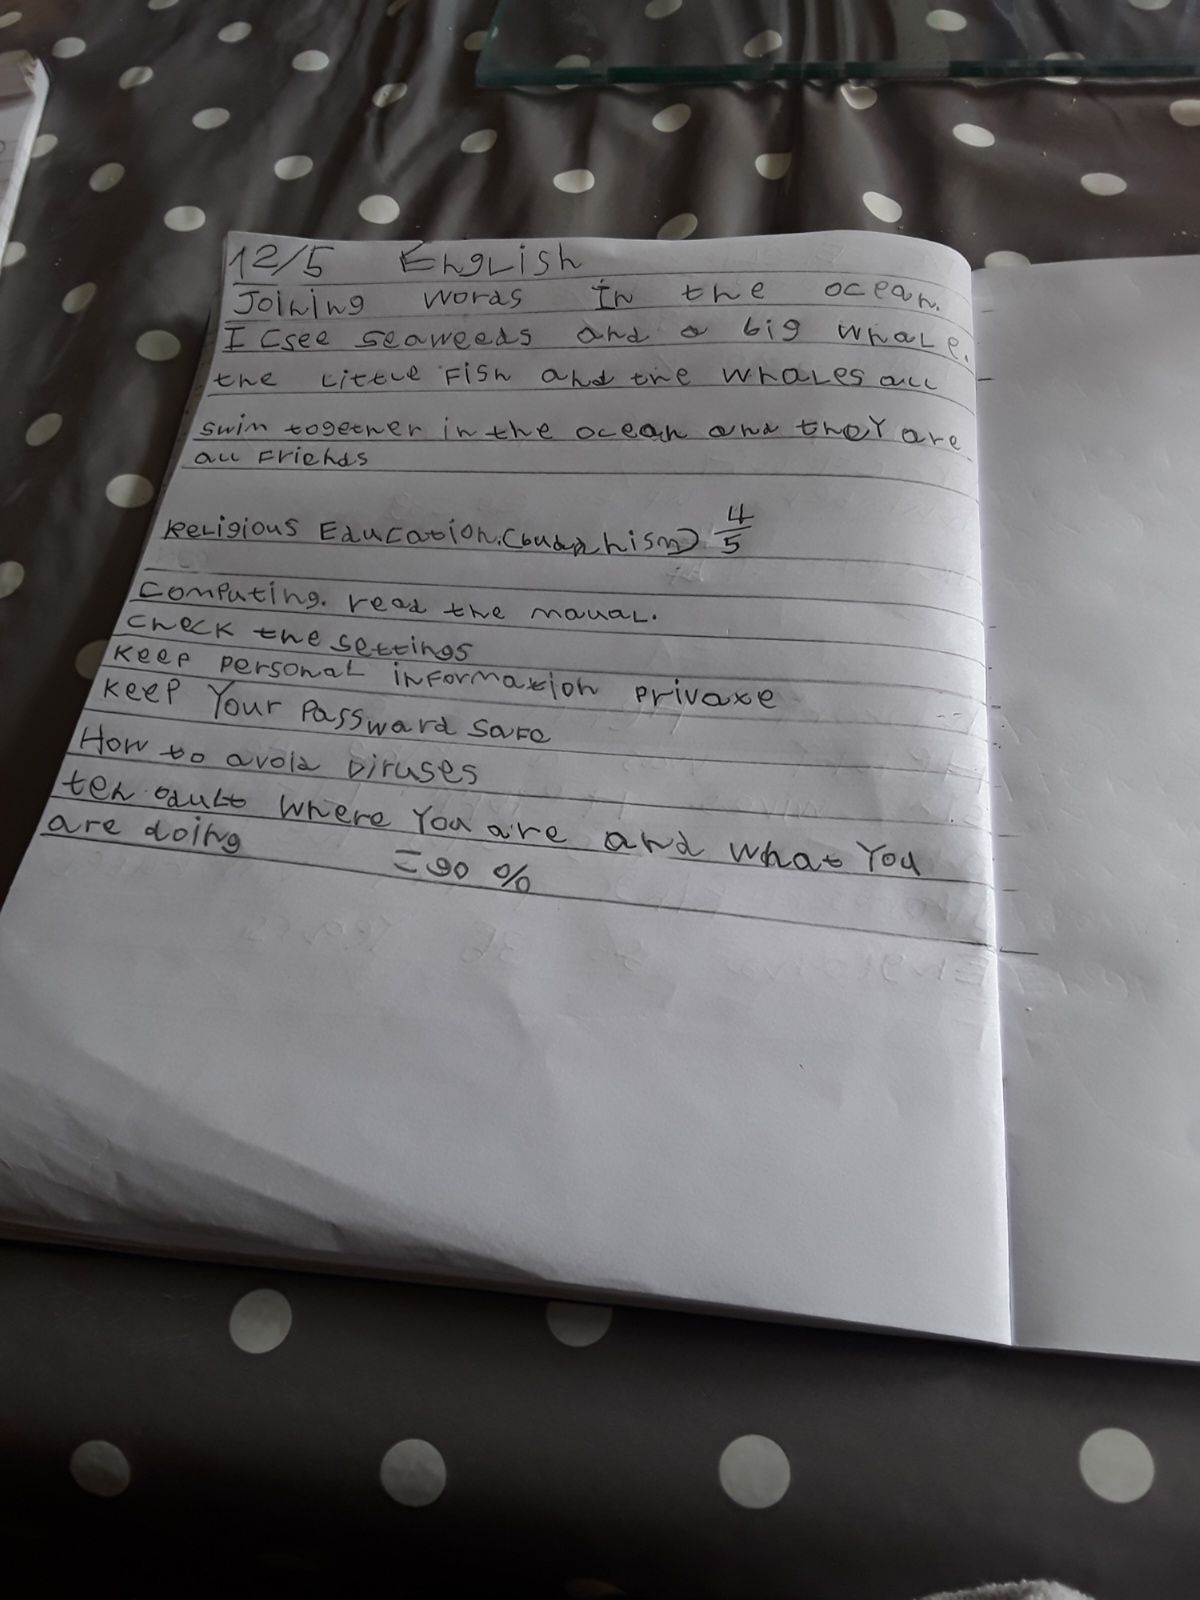 12/5 English
Joining words In the ocean.
I Csee seaweeds and a big whale.
the little Fish and the whales all
swim together in the ocean and they are
all Friends
Religious Education. (buddhism) 4/5
Computing. read the maual.
check the settings
Keep personal information private
Keep Your Password safe
How to avoid viruses
ten adult where You are and what You
are doing = 90 %